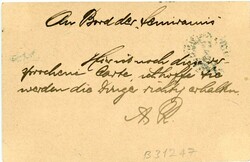 An Bord der Semiramis
Hier ist noch die ver-
sprochene Carte, ich hoffe Sie
werden die Dinge richtig erhalten
A R
B 31247